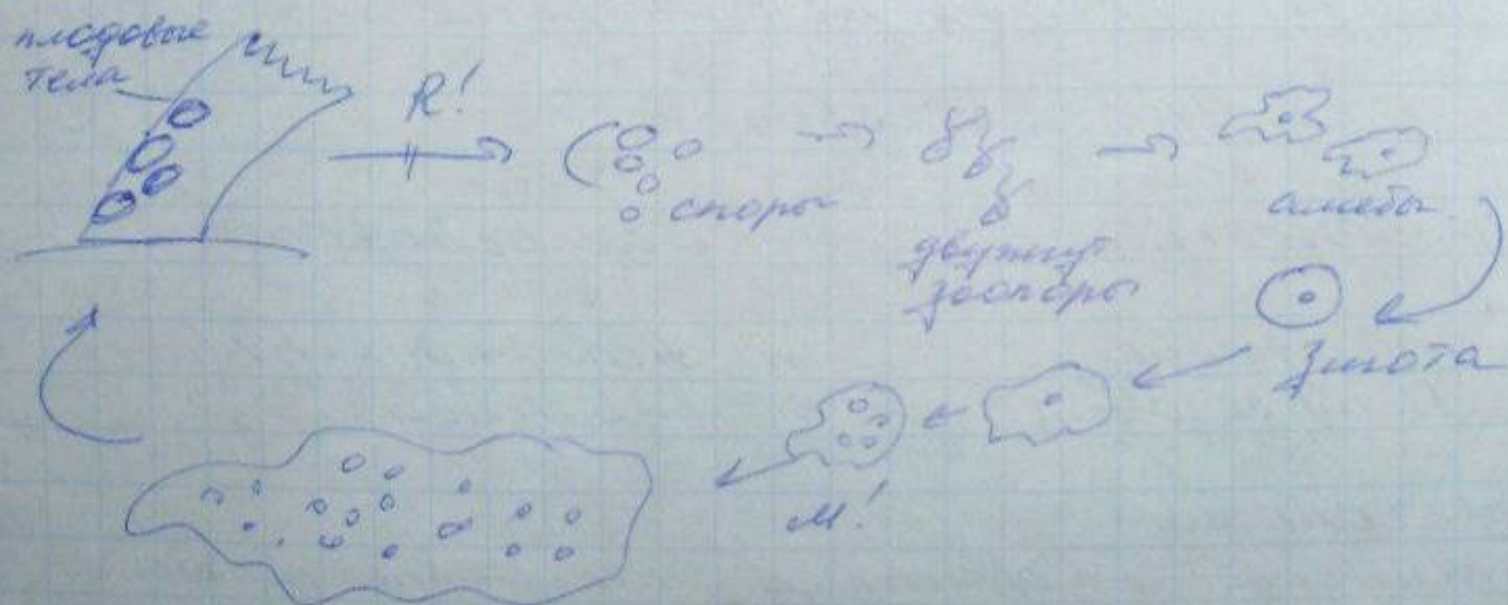 плодовые
тела
R!
споры
двужгут.
зооспоры
амебы
зигота
М!